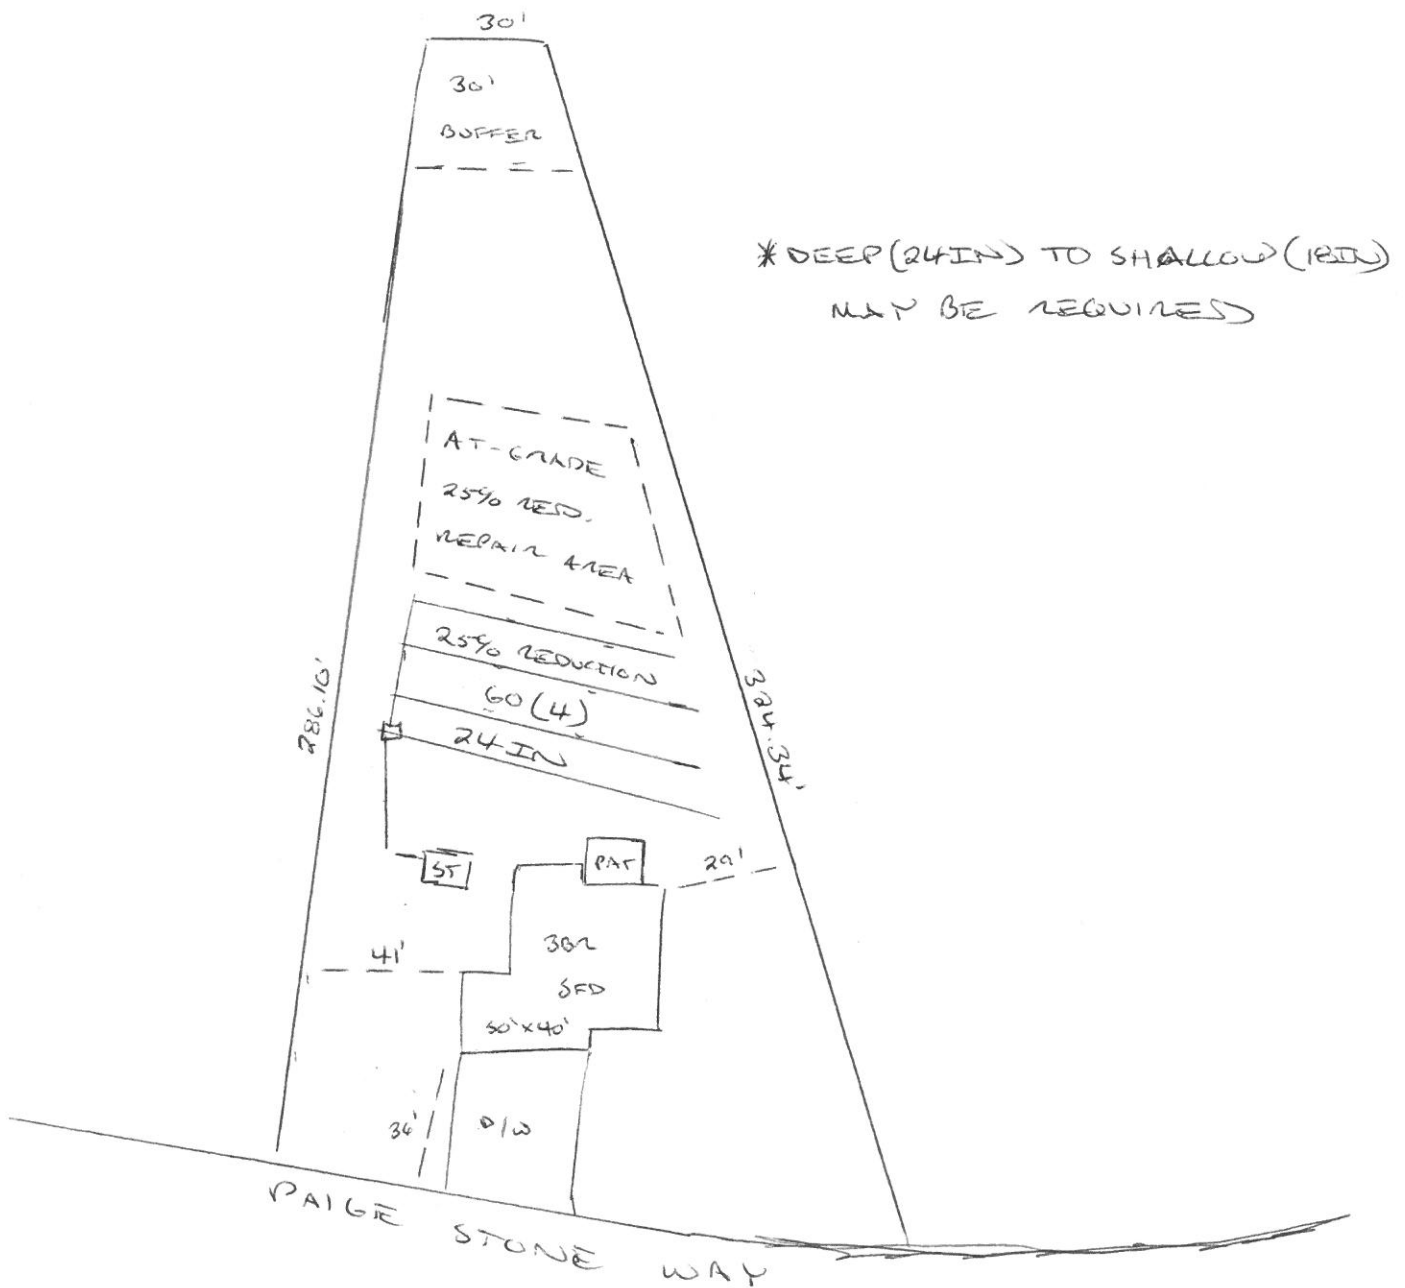 30'
30'
BUFFER
*DEEP(24IN) TO SHALLOW(18IN)
MAY BE REQUIRED
AT-GRADE
25% RED.
REPAIR AREA
25% REDUCTION
60(4)
24IN
286.10'
324.34'
ST
PAT
29'
41'
3BR
SFD
50'x40'
D/W
PAIGE STONE WAY